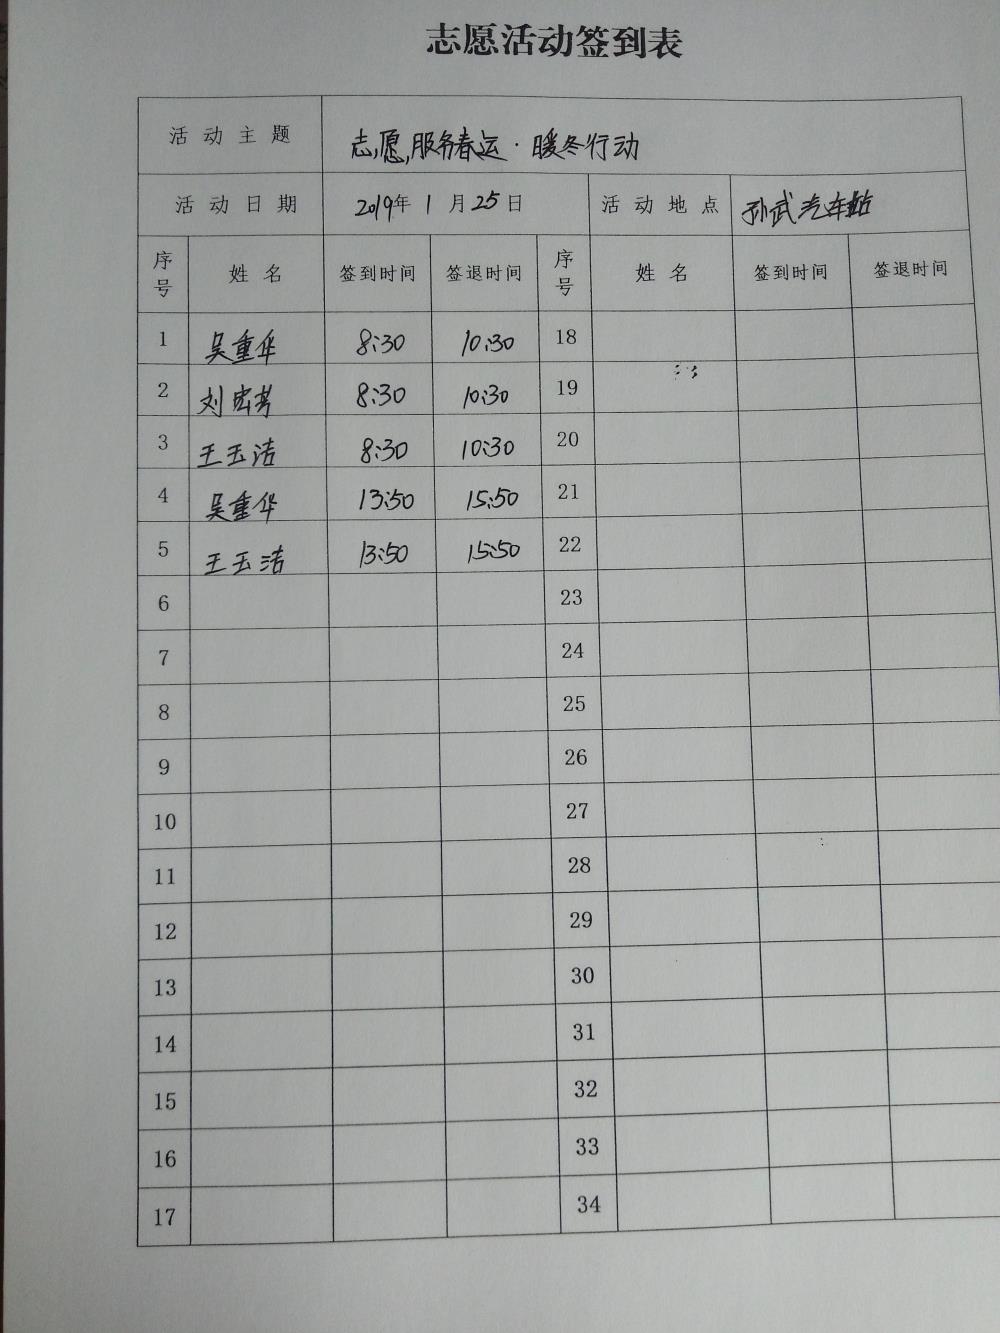 志愿活动签到表
活动主题 志愿服务春运·暖冬行动
活动日期 2019年1月25日 活动地点 孙武汽车站
序号 姓名 签到时间 签退时间 序号 姓名 签到时间 签退时间
1 吴重华 8:30 10:30 18
2 刘宏 8:30 10:30 19
3 王玉洁 8:30 10:30 20
4 吴重华 13:50 15:50 21
5 王玉洁 13:50 15:50 22
6 23
7 24
8 25
9 26
10 27
11 28
12 29
13 30
14 31
15 32
16 33
17 34